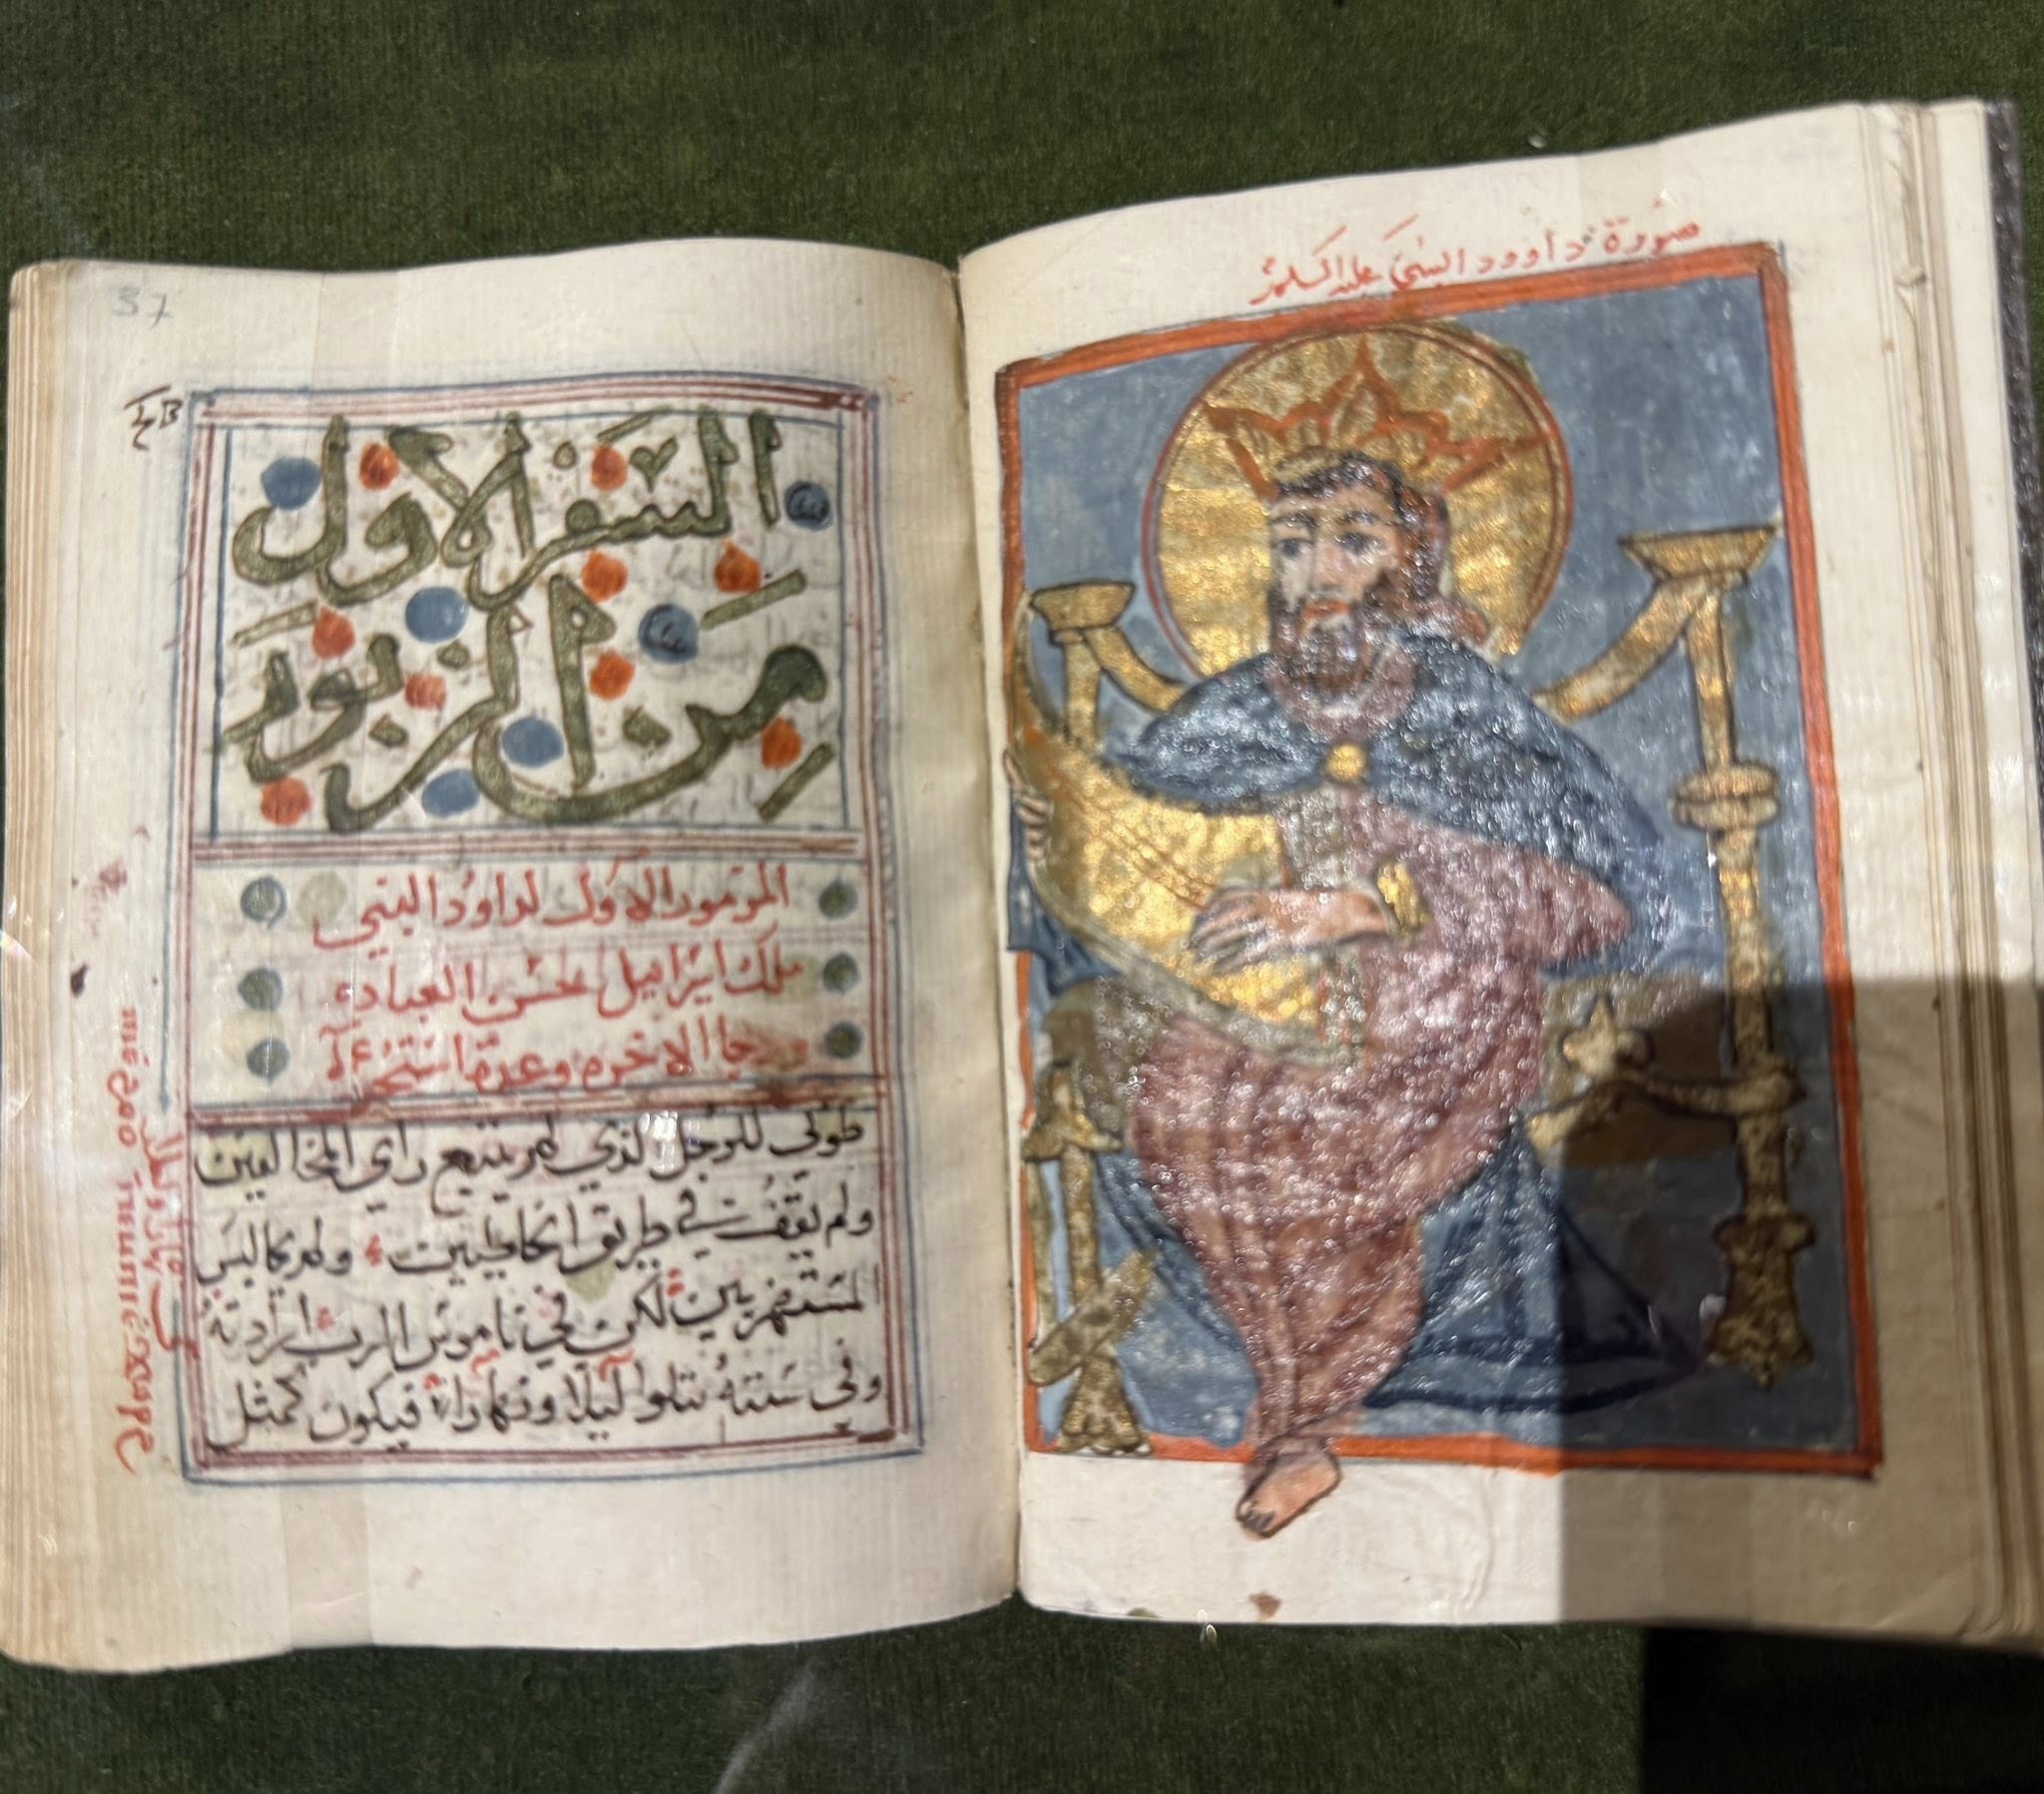 صورة داوود النبي عليه السلام
السفر الاول
من الزبور
المزمور الاول لداود النبي
ملك ايسراييل بحسن العباده
ورجا الاخره وعدة استخن
طوبي للرجل الذي لم يتبع راي المخالفين
ولم يقف في طريق الخاطيين ولم يجالس
المستهزيين لكن في ناموس الرب ارادته
وفي سنته يتلوا ليلا ونهارا فيكون كمثل
57